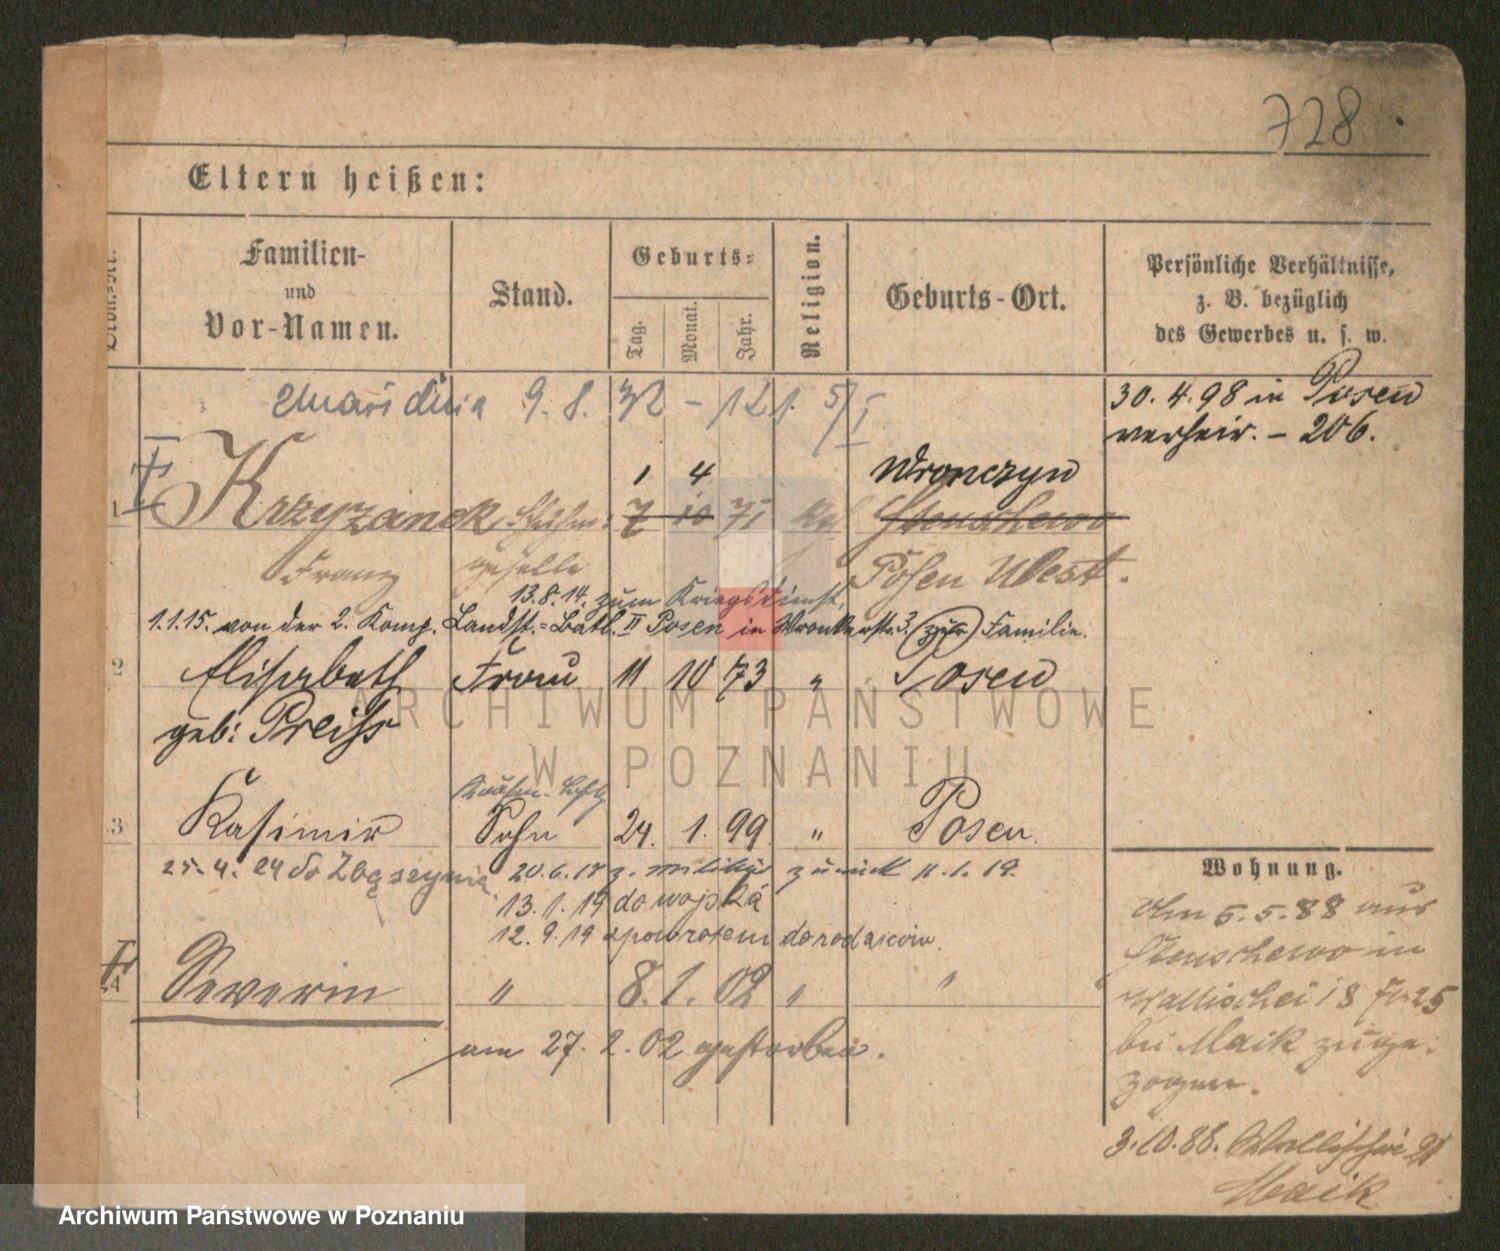 728
Eltern heißen:
Familien-
und
Vor-Namen.
Stand.
Geburts-
Tag.
Monat.
Jahr.
Religion.
Geburts-Ort.
Persönliche Verhältnisse,
z. B. bezüglich
des Gewerbes u. s. w.
9. 8. 32 - 121. 5/I
30. 4. 98 in Posen
verheir. - 206.
1 4 Wronczyn
1 Krzyzanek 7 10 71 Stenschewo
Franz geselle Posen West.
13. 8. 14. zum Kriegsdienst,
1.1.15. von der 2. Komp. Landst.-Batl. II Posen in Wronkerstr. 3. (zur) Familie.
2 Elisabeth Frau 11 10 73 " Posen
geb: Preiss
ARCHIWUM PAŃSTWOWE
W POZNANIU
3 Kasimir Sohn 24. 1. 99 " Posen.
25. 4. 24 do Zbąszynia 20. 6. 17 z. Militär zurück 11. 1. 19.
13. 1. 19 do wojska
12. 9. 19 spowrotem do rodziców.
4 Severin " 8. 1. 02 " "
am 27. 2. 02 gestorben.
Wohnung.
Am 5. 5. 88 aus
Stenschewo in
Wallischei 18
bei Maik zuge-
zogen.
3. 10. 88. Wallischei 21
Maik
Archiwum Państwowe w Poznaniu